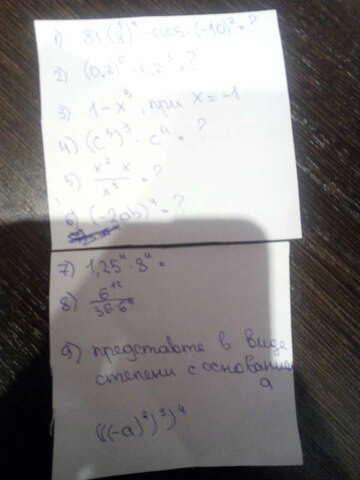 1) 81(1/3)⁴ - 0,05 · (-10)² = ?
2) (0,2)⁵ = ?
3) 1 - x⁹, при x = -1
4) (c⁴)³ · c⁴ = ?
5) x² x / x³ = ?
6) (-2ab)⁴ = ?
7) 1,25⁴ · 8⁴ =
8) 6¹² / 36·6⁹
9) представьте в виде
степени с основанием
a
(((-a)²)³)⁴